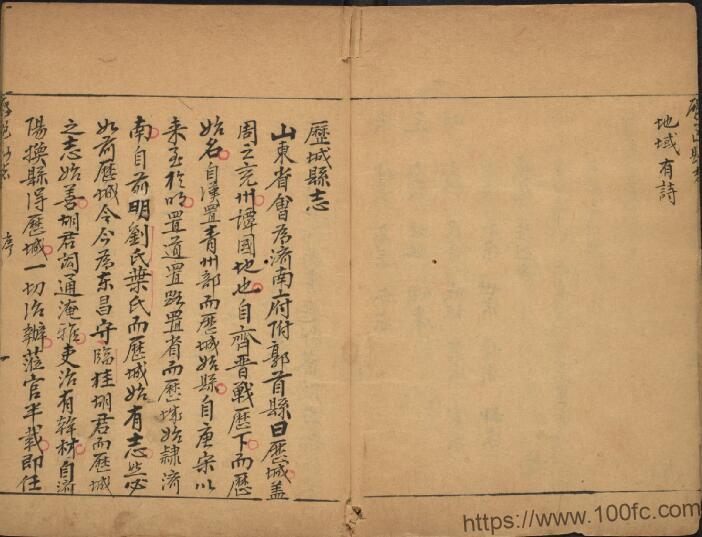 地域有詩
歷城縣志
山東省會為濟南府附郭首縣曰歷城蓋
周之兗州譚國地也自齊晉戰歷下而歷
始名自漢置青州部而歷城始縣自唐宋以
来至於明置道置路置省而歷城始隸濟
南自前明劉氏葉氏而歷城始有志然必
如前歷城令今為东昌守臨桂胡君而歷城
之志始善胡君閎通淹雅吏治有幹材自濟
陽換縣得歷城一切治辦蒞官半載即任
序
一
https://www.100fc.com